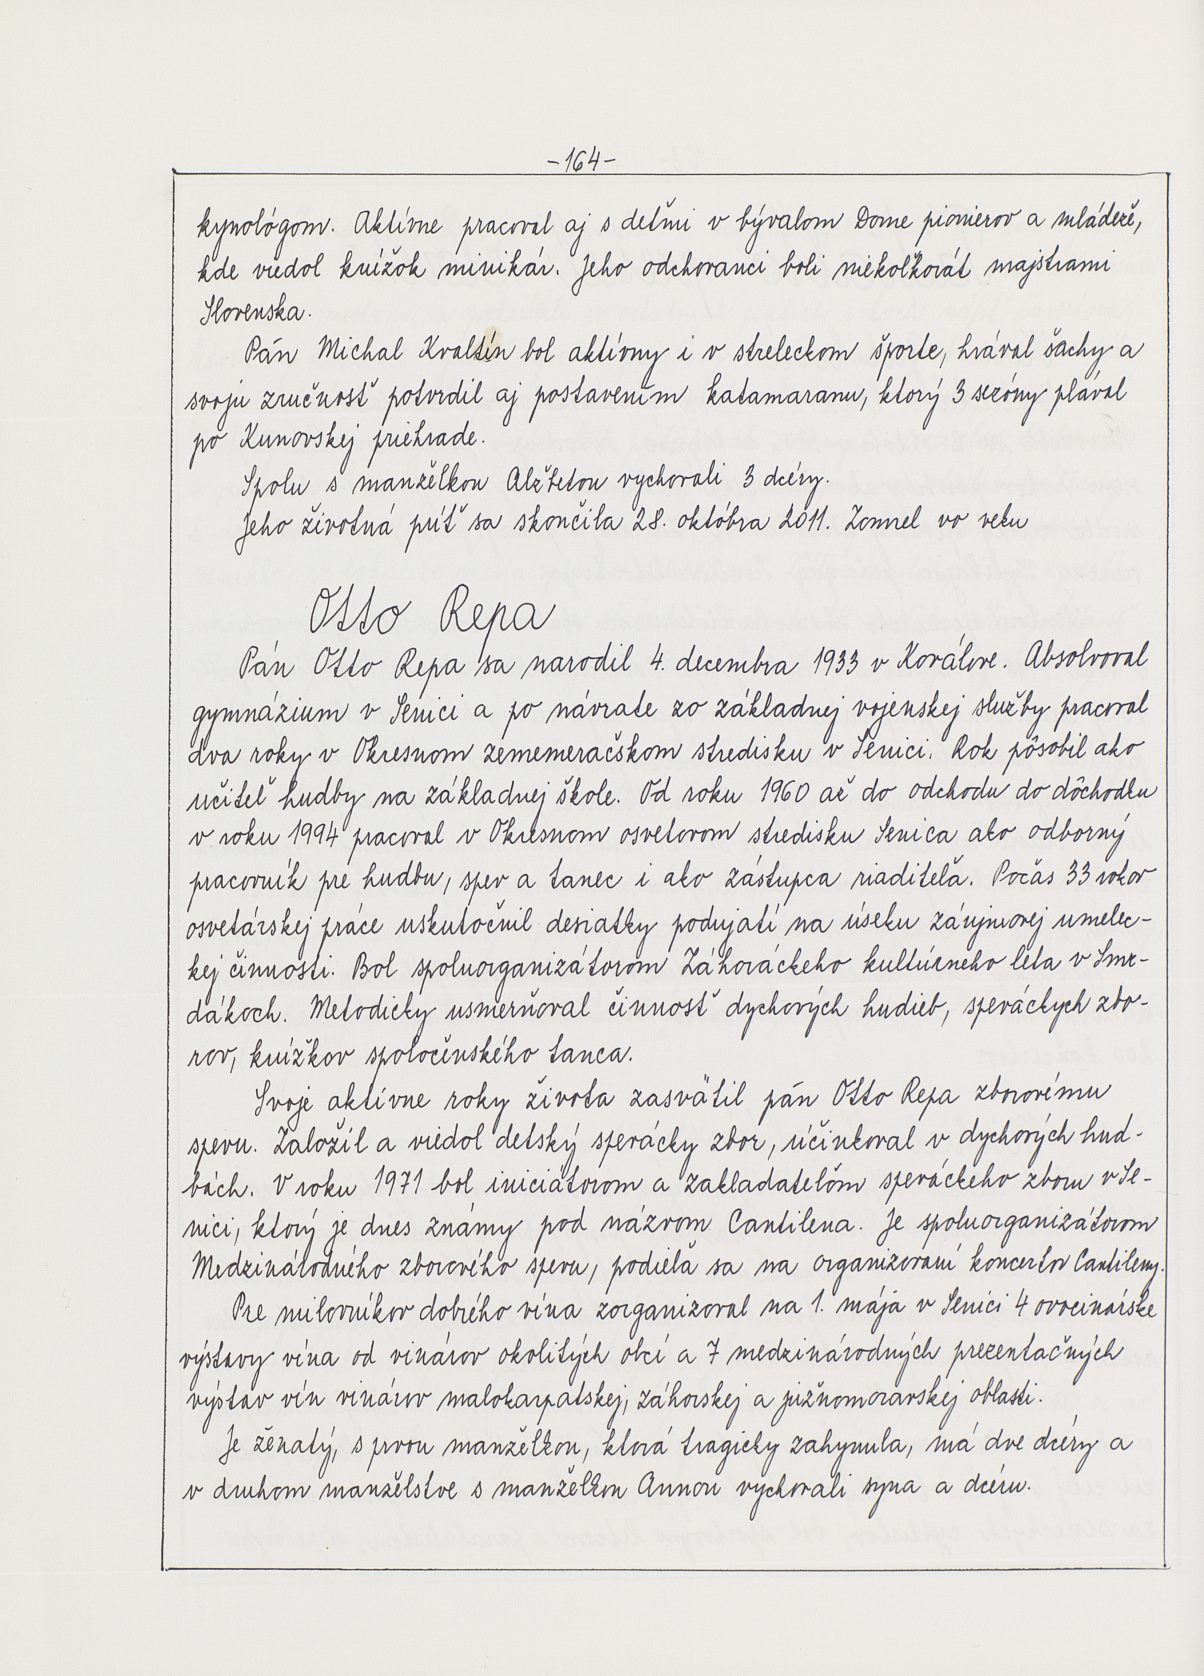 -164-
kynológom. Aktívne pracoval aj s deťmi v bývalom Dome pionierov a mládeže,
kde viedol krúžok minikár. Jeho odchovanci boli niekoľkorát majstrami
Slovenska.
Pán Michal Kvaltín bol aktívny i v streleckom športe, hrával šachy a
svoju zručnosť potvrdil aj postavením katamaranu, ktorý 3 sezóny plával
po Kunovskej priehrade.
Spolu s manželkou Alžbetou vychovali 3 dcéry.
Jeho životná púť sa skončila 28. októbra 2011. Zomrel vo veku
Otto Repa
Pán Otto Repa sa narodil 4. decembra 1933 v Koválove. Absolvoval
gymnázium v Senici a po návrate zo základnej vojenskej služby pracoval
dva roky v Okresnom zememeračskom stredisku v Senici. Rok pôsobil ako
učiteľ hudby na základnej škole. Od roku 1960 až do odchodu do dôchodku
v roku 1994 pracoval v Okresnom osvetovom stredisku Senica ako odborný
pracovník pre hudbu, spev a tanec i ako zástupca riaditeľa. Počas 33 rokov
osvetárskej práce uskutočnil desiatky podujatí na úseku záujmovej umelec-
kej činnosti. Bol spoluorganizátorom Záhoráckeho kultúrneho leta v Smr-
dákoch. Metodicky usmerňoval činnosť dychových hudieb, speváckych zbo-
rov, krúžkov spoločenského tanca.
Svoje aktívne roky života zasvätil pán Otto Repa zborovému
spevu. Založil a viedol detský spevácky zbor, účinkoval v dychových hud-
bách. V roku 1971 bol iniciátorom a zakladateľom speváckeho zboru v Se-
nici, ktorý je dnes známy pod názvom Cantilena. Je spoluorganizátorom
Medzinárodného zborového spevu, podieľa sa na organizovaní koncertov Cantileny.
Pre milovníkov dobrého vína zorganizoval na 1. mája v Senici 4 ovocinárske
výstavy vína od vinárov okolitých obcí a 7 medzinárodných prezentačných
výstav vín vinárov malokarpatskej, záhorskej a južnomoravskej oblasti.
Je ženatý, s prvou manželkou, ktorá tragicky zahynula, má dve dcéry a
v druhom manželstve s manželkou Annou vychovali syna a dcéru.